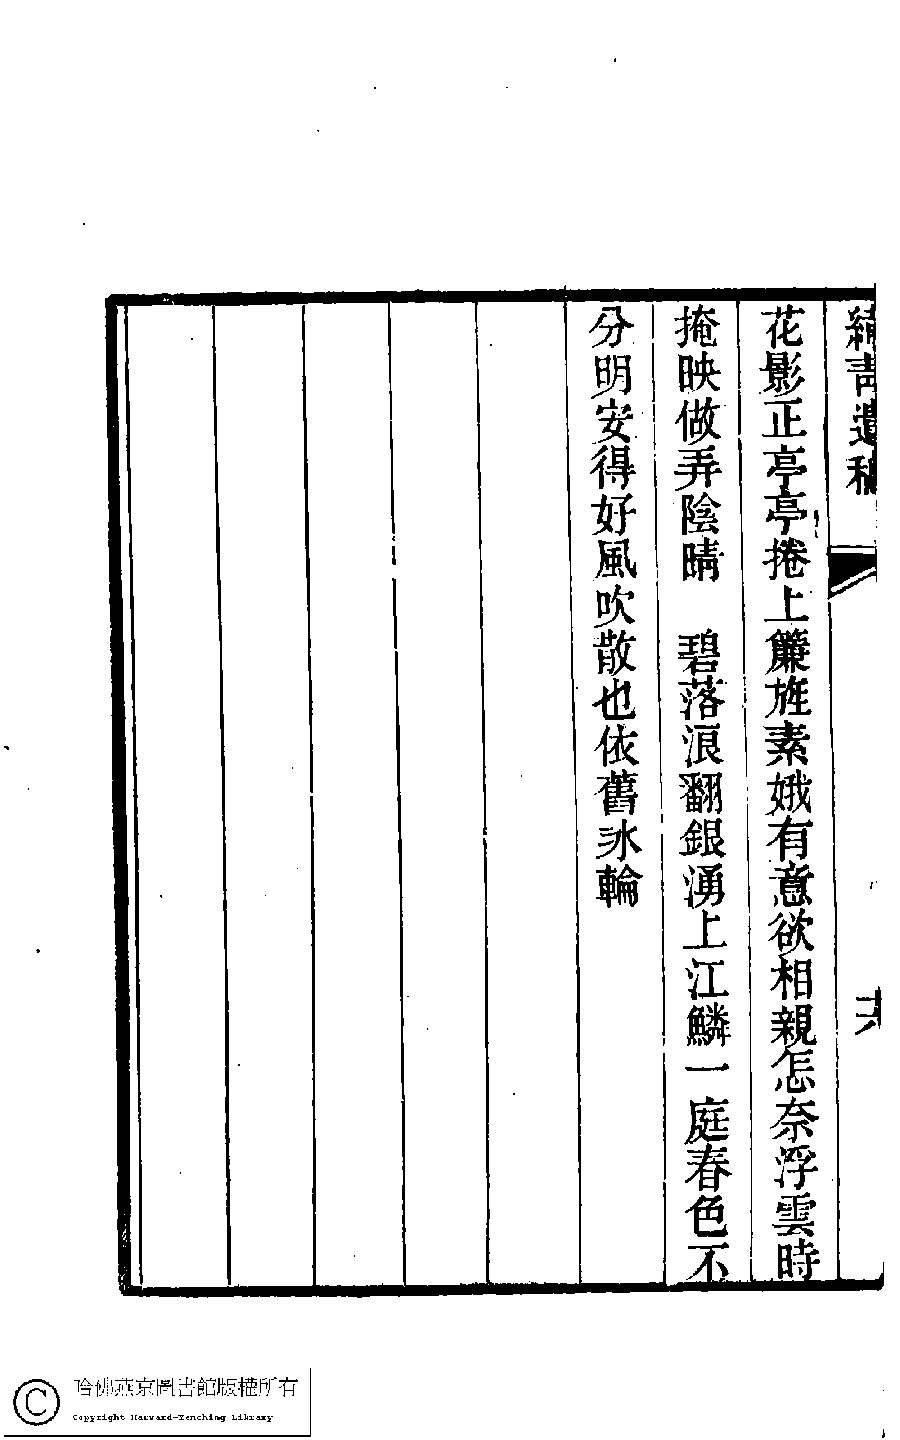 繡青遺稿
花影正亭亭捲上簾旌素娥有意欲相親怎奈浮雲時
掩映做弄陰晴　碧落浪翻銀湧上江鱗一庭春色不
分明安得好風吹散也依舊冰輪
哈佛燕京圖書館版權所有
Copyright Harvard-Yenching Library